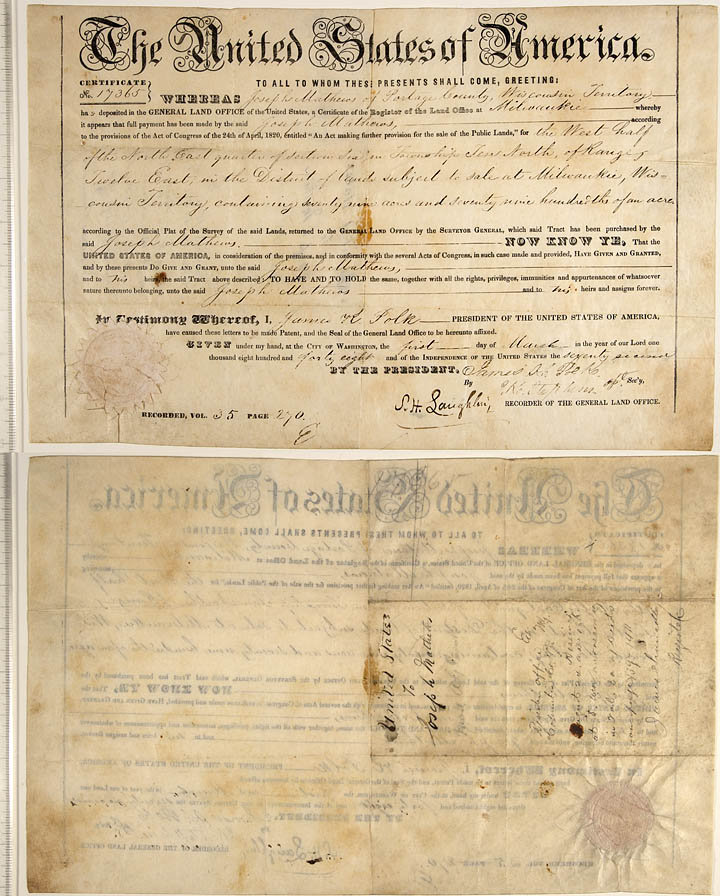 The United States of America.
CERTIFICATE
No. 17365
TO ALL TO WHOM THESE PRESENTS SHALL COME, GREETING:
WHEREAS Joseph Mathews of Portage County, Wisconsin Territory,
has deposited in the GENERAL LAND OFFICE of the United States, a Certificate of the Register of the Land Office at Milwaukie whereby
it appears that full payment has been made by the said Joseph Mathews according
to the provisions of the Act of Congress of the 24th of April, 1820, entitled "An Act making further provision for the sale of the Public Lands," for the West half
of the North East quarter of section Six, in Township Ten North, of Range
Twelve East, in the District of lands subject to sale at Milwaukie, Wis-
consin Territory, containing seventy nine acres and seventy nine hundredths of an acre
according to the Official Plat of the Survey of the said Lands, returned to the GENERAL LAND OFFICE by the SURVEYOR GENERAL, which said Tract has been purchased by the
said Joseph Mathews. NOW KNOW YE, That the
UNITED STATES OF AMERICA, in consideration of the premises, and in conformity with the several Acts of Congress, in such case made and provided, HAVE GIVEN AND GRANTED,
and by these presents DO GIVE AND GRANT, unto the said Joseph Mathews,
and to his heirs, the said Tract above described; TO HAVE AND TO HOLD the same, together with all the rights, privileges, immunities and appurtenances of whatsoever
nature thereunto belonging, unto the said Joseph Mathews and to his heirs and assigns forever.
In Testimony Whereof, I, James K. Polk PRESIDENT OF THE UNITED STATES OF AMERICA,
have caused these letters to be made Patent, and the Seal of the General Land Office to be hereunto affixed.
GIVEN under my hand, at the CITY OF WASHINGTON, the first day of March in the year of our Lord one
thousand eight hundred and forty eight and of the INDEPENDENCE OF THE UNITED STATES the seventy second
BY THE PRESIDENT. James K. Polk
By Sec'y.
S. H. Laughlin RECORDER OF THE GENERAL LAND OFFICE.
RECORDED, VOL. 35 PAGE 270.
United States
To
Joseph Mathews